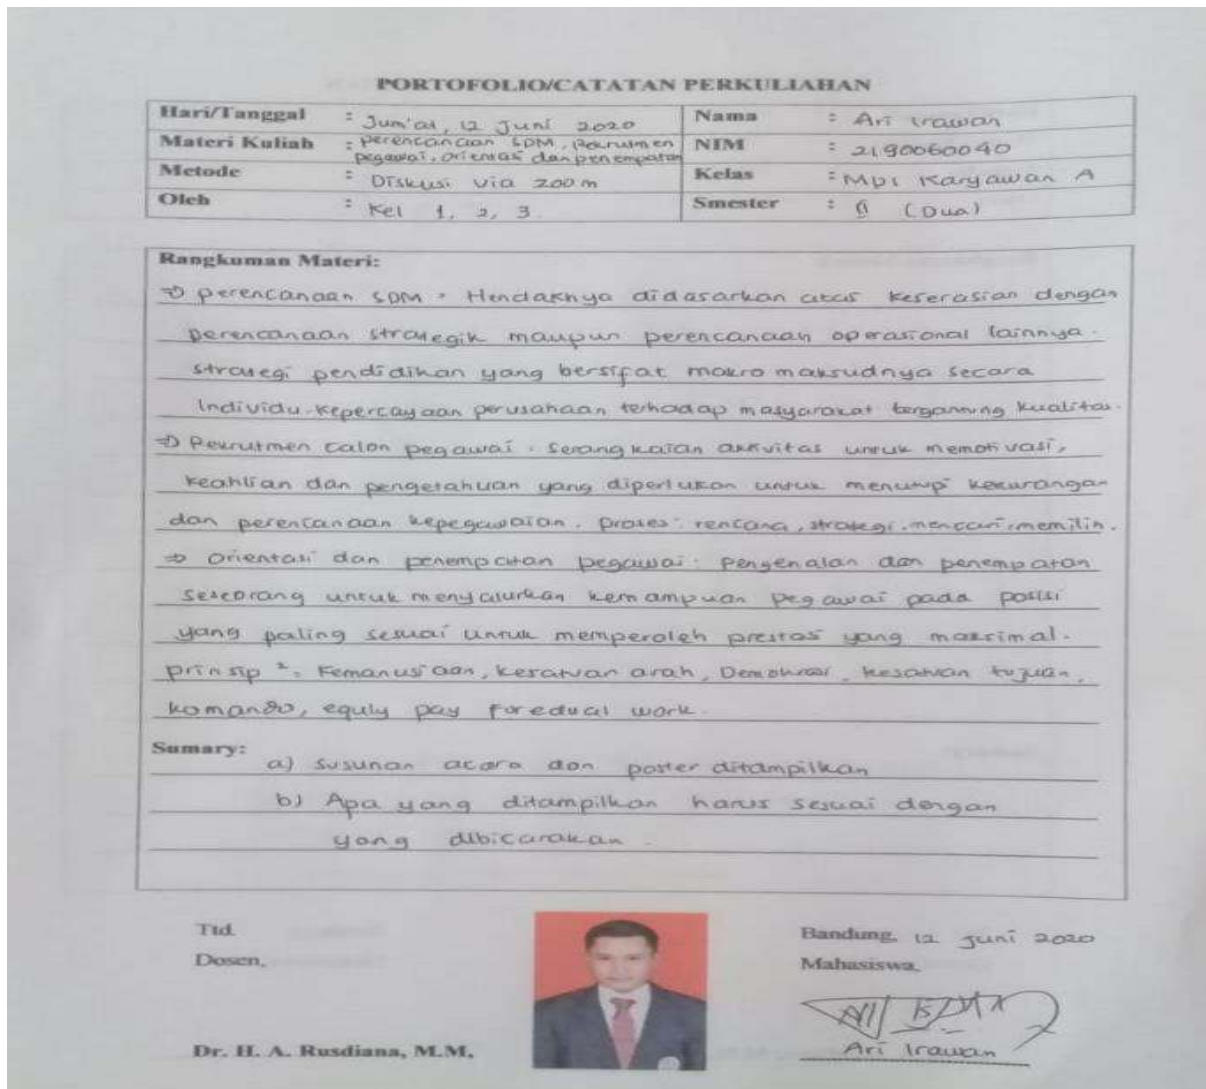 PORTOFOLIO/CATATAN PERKULIAHAN
Hari/Tanggal : Jum'at, 12 Juni 2020 Nama : Ari Irawan
Materi Kuliah : Perencanaan SDM, Rekrutmen pegawai, orientasi dan penempatan NIM : 2190060040
Metode : Diskusi via zoom Kelas : MPI Karyawan A
Oleh : Kel 1, 2, 3. Smester : II (Dua)
Rangkuman Materi:
⇒ perencanaan SDM : Hendaknya didasarkan atas keserasian dengan
perencanaan strategik maupun perencanaan operasional lainnya.
strategi pendidikan yang bersifat makro maksudnya secara
Individu. Kepercayaan perusahaan terhadap masyarakat kualitas.
⇒ Rekrutmen calon pegawai : serangkaian aktivitas untuk memotivasi,
keahlian dan pengetahuan yang diperlukan untuk menutupi kekurangan
dan perencanaan kepegawaian. proses : rencana, strategi, mencari, memilih.
⇒ Orientasi dan penempatan pegawai : Pengenalan dan penempatan
seseorang untuk menyalurkan kemampuan pegawai pada posisi
yang paling sesuai untuk memperoleh prestasi yang maksimal.
prinsip ² : Kemanusiaan, kesatuan arah, Demokrasi, kesatuan tujuan,
komando, equly pay for work.
Sumary:
a) Susunan acara dan poster ditampilkan
b) Apa yang ditampilkan harus sesuai dengan
yang dibicarakan.
Ttd. Bandung, 12 Juni 2020
Dosen, Mahasiswa,
Dr. H. A. Rusdiana, M.M. Ari Irawan